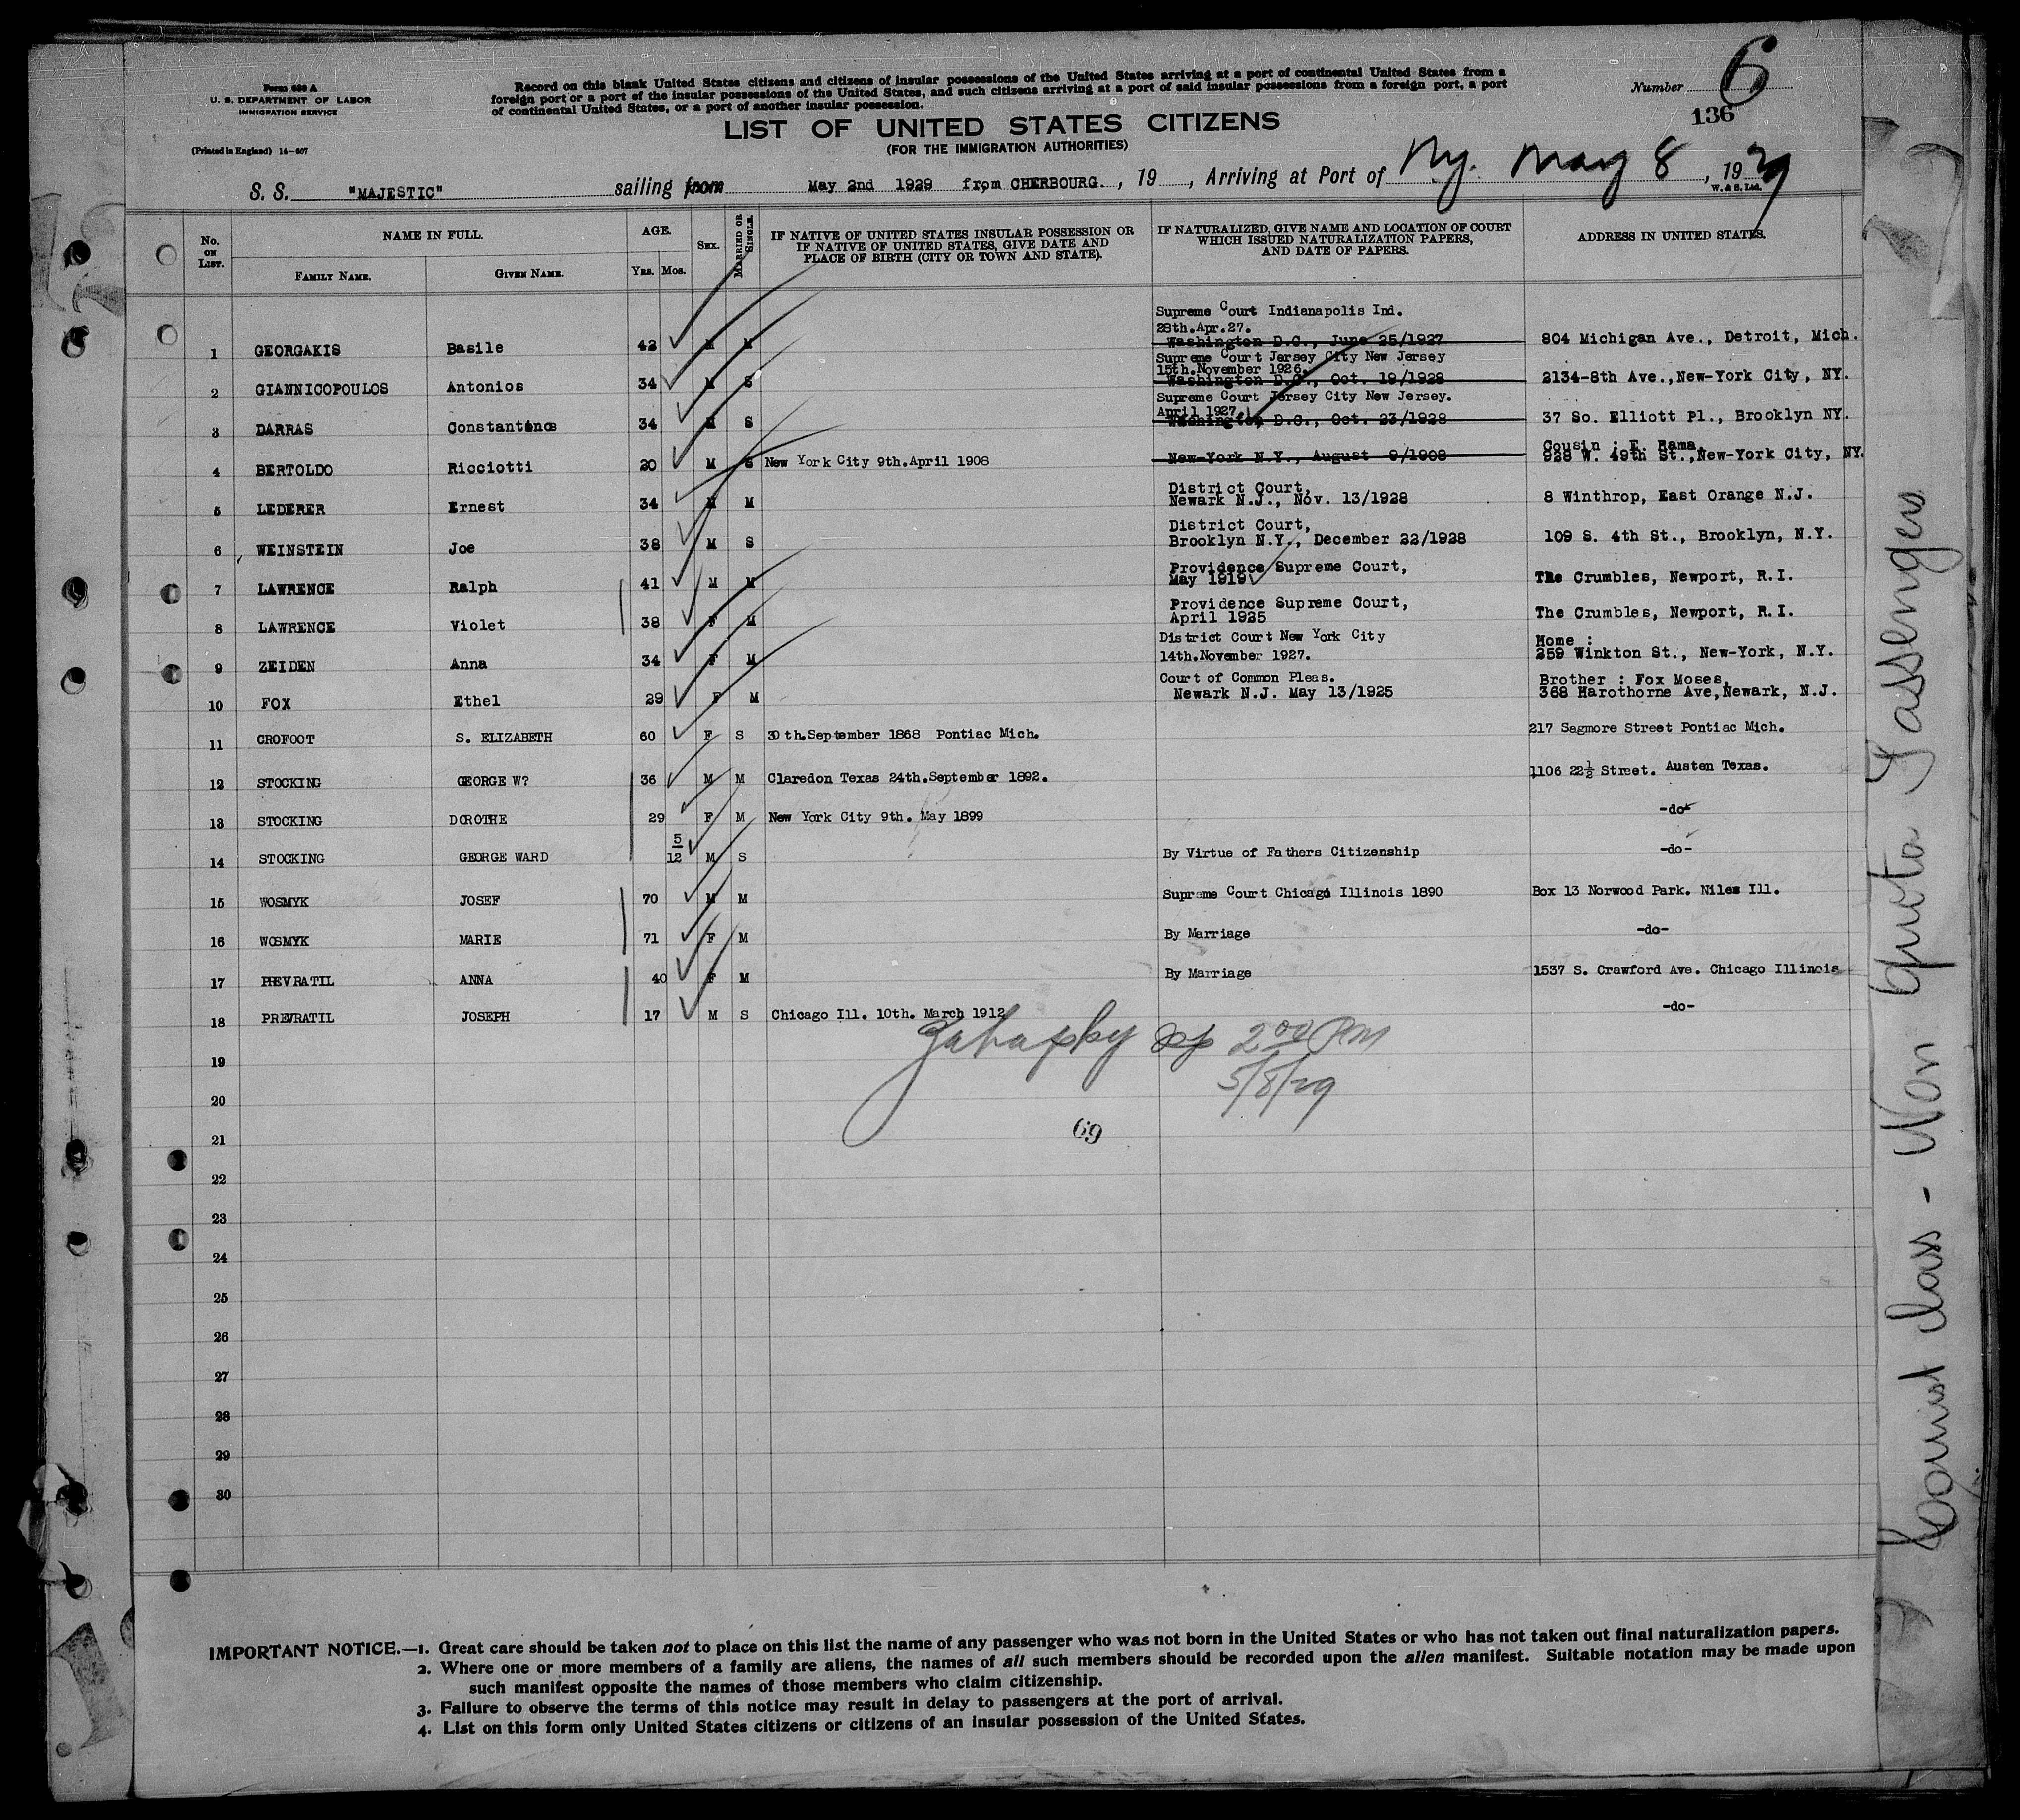 Form 630 A
U. S. DEPARTMENT OF LABOR
IMMIGRATION SERVICE
(Printed in England) 14—607
Record on this blank United States citizens and citizens of insular possessions of the United States arriving at a port of continental United States from a
foreign port or a port of the insular possessions of the United States, and such citizens arriving at a port of said insular possessions from a foreign port, a port
of continental United States, or a port of another insular possession.
Number 6
136
LIST OF UNITED STATES CITIZENS
(FOR THE IMMIGRATION AUTHORITIES)
S. S. "MAJESTIC" sailing from May 2nd 1929 from CHERBOURG. , 19 , Arriving at Port of Ny. May 8 , 1929
W. & S. Ltd.
No. ON LIST. NAME IN FULL. AGE. SEX. MARRIED OR SINGLE. IF NATIVE OF UNITED STATES INSULAR POSSESSION OR IF NATIVE OF UNITED STATES, GIVE DATE AND PLACE OF BIRTH (CITY OR TOWN AND STATE). IF NATURALIZED, GIVE NAME AND LOCATION OF COURT WHICH ISSUED NATURALIZATION PAPERS, AND DATE OF PAPERS. ADDRESS IN UNITED STATES.
FAMILY NAME. GIVEN NAME. YRS. MOS.
Supreme Court Indianapolis Ind.
28th.Apr.27.
1 GEORGAKIS Basile 42 M M Washington D.C., June 25/1927 804 Michigan Ave., Detroit, Mich.
Supreme Court Jersey City New Jersey
15th.November 1926.
2 GIANNICOPOULOS Antonios 34 M S Washington D.C., Oct. 19/1928 2134-8th Ave.,New-York City, NY.
Supreme Court Jersey City New Jersey.
April 1927.
3 DARRAS Constantinos 34 M S Washington D.C., Oct. 23/1928 37 So. Elliott Pl., Brooklyn NY.
Cousin : E. Rama,
4 BERTOLDO Ricciotti 20 M S New York City 9th.April 1908 New-York N.Y., August 9/1908 928 W. 49th St.,New-York City, NY.
District Court,
5 LEDERER Ernest 34 M M Newark N.J., Nov. 13/1928 8 Winthrop, East Orange N.J.
District Court,
6 WEINSTEIN Joe 38 M S Brooklyn N.Y., December 22/1928 109 S. 4th St., Brooklyn, N.Y.
Providence Supreme Court,
7 LAWRENCE Ralph 41 M M May 1919 The Crumbles, Newport, R.I.
Providence Supreme Court,
8 LAWRENCE Violet 38 F M April 1925 The Crumbles, Newport, R.I.
District Court New York City Home :
9 ZEIDEN Anna 34 F M 14th.November 1927. 259 Winkton St., New-York, N.Y.
Court of Common Pleas. Brother : Fox Moses,
10 FOX Ethel 29 F M Newark N.J. May 13/1925 368 Harothorne Ave,Newark, N.J.
11 CROFOOT S. ELIZABETH 60 F S 30th.September 1868 Pontiac Mich. 217 Sagmore Street Pontiac Mich.
12 STOCKING GEORGE W? 36 M M Claredon Texas 24th.September 1892. 1106 22½ Street. Austen Texas.
13 STOCKING DOROTHE 29 F M New York City 9th. May 1899 -do-
14 STOCKING GEORGE WARD 5/12 M S By Virtue of Fathers Citizenship -do-
15 WOSMYK JOSEF 70 M M Supreme Court Chicago Illinois 1890 Box 13 Norwood Park. Niles Ill.
16 WOSMYK MARIE 71 F M By Marriage -do-
17 PREVRATIL ANNA 40 F M By Marriage 1537 S. Crawford Ave. Chicago Illinois
18 PREVRATIL JOSEPH 17 M S Chicago Ill. 10th. March 1912 -do-
2 00 PM
19
5/8/29
20
69
21
22
23
24
25
26
27
28
29
30
IMPORTANT NOTICE.—1. Great care should be taken not to place on this list the name of any passenger who was not born in the United States or who has not taken out final naturalization papers.
2. Where one or more members of a family are aliens, the names of all such members should be recorded upon the alien manifest. Suitable notation may be made upon
such manifest opposite the names of those members who claim citizenship.
3. Failure to observe the terms of this notice may result in delay to passengers at the port of arrival.
4. List on this form only United States citizens or citizens of an insular possession of the United States.
Tourist class - Non Quota Passengers